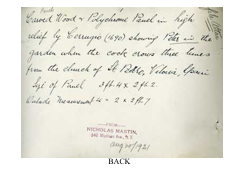 Carved Wood & Polychrome Panel in high
relief by Corrugio (1490) showing Peter in the
garden when the cock crows three times
from the church of St Pedro, Vitoria, Spain
Sz of Panel 3 ft. 4 x 2 ft 2.
Outside Measurement 4 - 2 x 2 ft. 7
FROM
NICHOLAS MARTIN,
Aug 20/1921
BACK